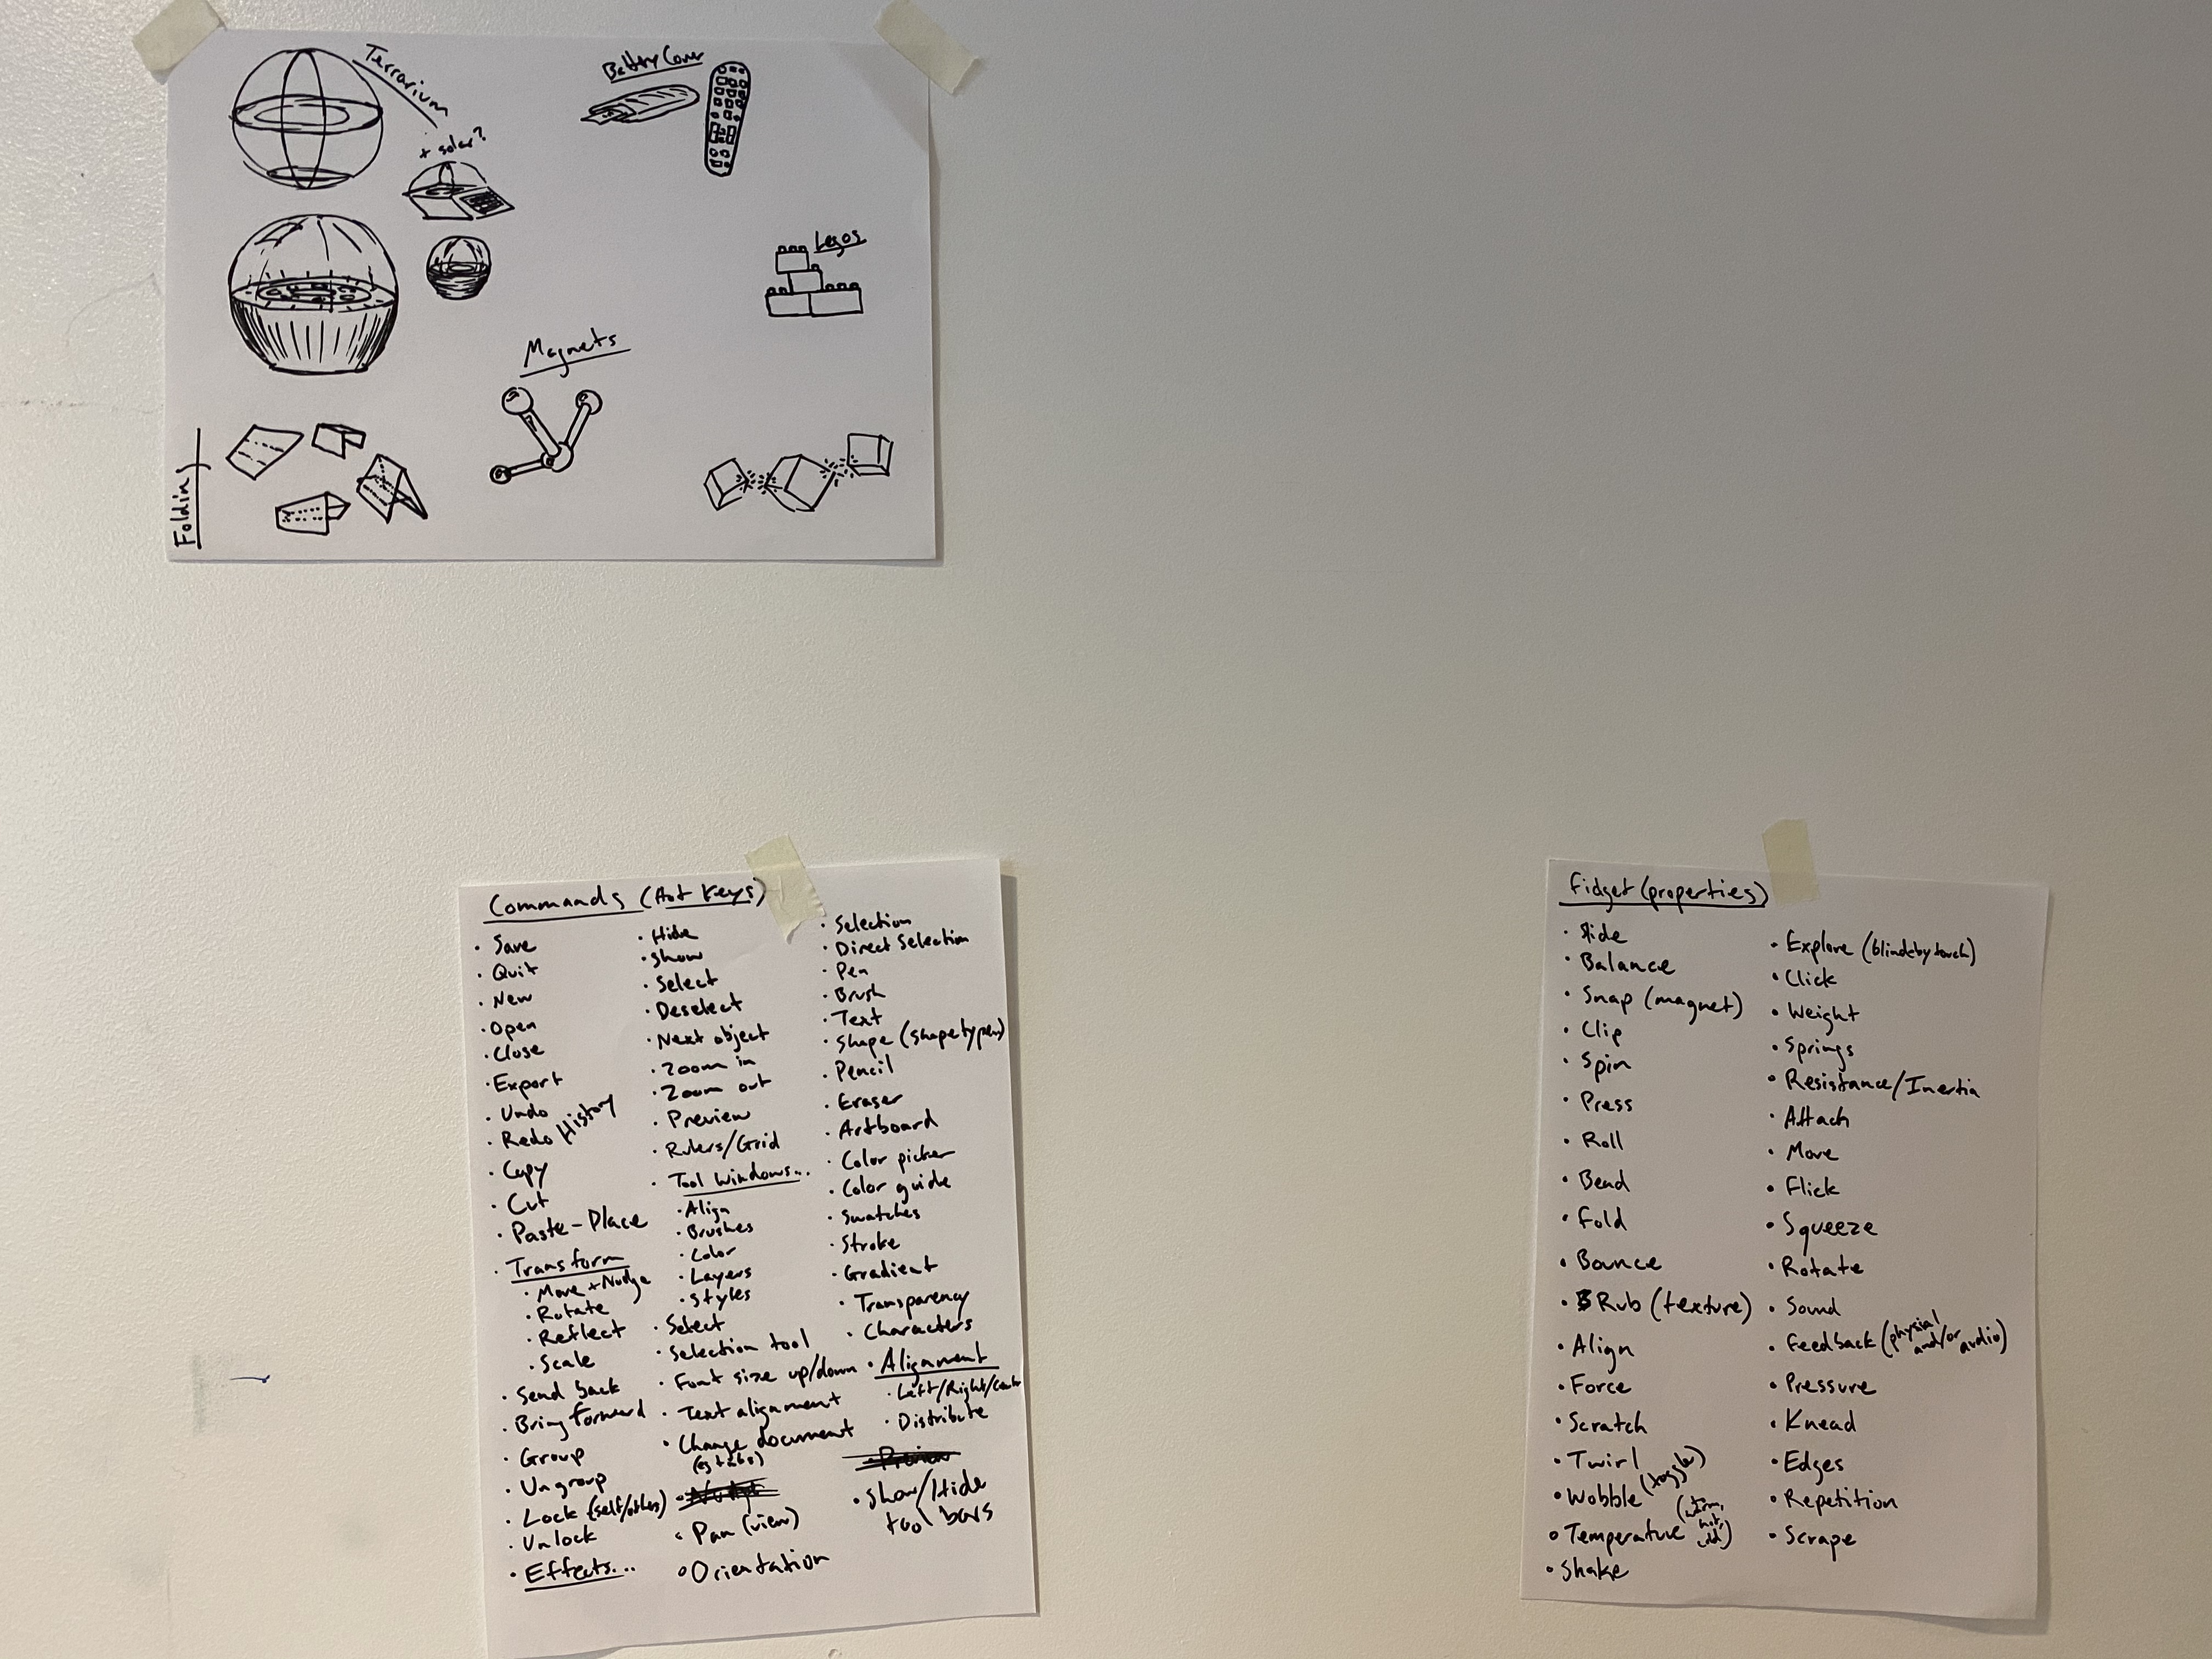 Terrarium
+ solar?
Battery Cover
Legos
Magnets
Folding
Commands (Hot Keys)
• Save
• Quit
• New
• Open
• Close
• Export
• Undo
• Redo History
• Copy
• Cut
• Paste - Place
• Transform
• Move + Nudge
• Rotate
• Reflect
• Scale
• Send back
• Bring forward
• Group
• Ungroup
• Lock (self/others)
• Unlock
• Effects...
• Hide
• Show
• Select
• Deselect
• Next object
• Zoom in
• Zoom out
• Preview
• Rulers/Grid
• Tool Windows...
• Align
• Brushes
• Color
• Layers
• Styles
• Select
• Selection tool
• Font size up/down
• Text alignment
• Change document
(eg tabs)
• Pan (view)
• Orientation
• Selection
• Direct Selection
• Pen
• Brush
• Text
• Shape (shape types)
• Pencil
• Eraser
• Artboard
• Color picker
• Color guide
• Swatches
• Stroke
• Gradient
• Transparency
• Characters
• Alignment
• Left/Right/Center
• Distribute
• Preview
• Show/Hide
tool bars
Fidget (properties)
• Slide
• Balance
• Snap (magnet)
• Clip
• Spin
• Press
• Roll
• Bend
• Fold
• Bounce
• Rub (texture)
• Align
• Force
• Scratch
• Twirl
• Wobble (toggle)
• Temperature (warm, hot, cold)
• Shake
• Explore (blind by touch)
• Click
• Weight
• Springs
• Resistance/Inertia
• Attach
• Move
• Flick
• Squeeze
• Rotate
• Sound
• Feedback (physial and/or audio)
• Pressure
• Knead
• Edges
• Repetition
• Scrape